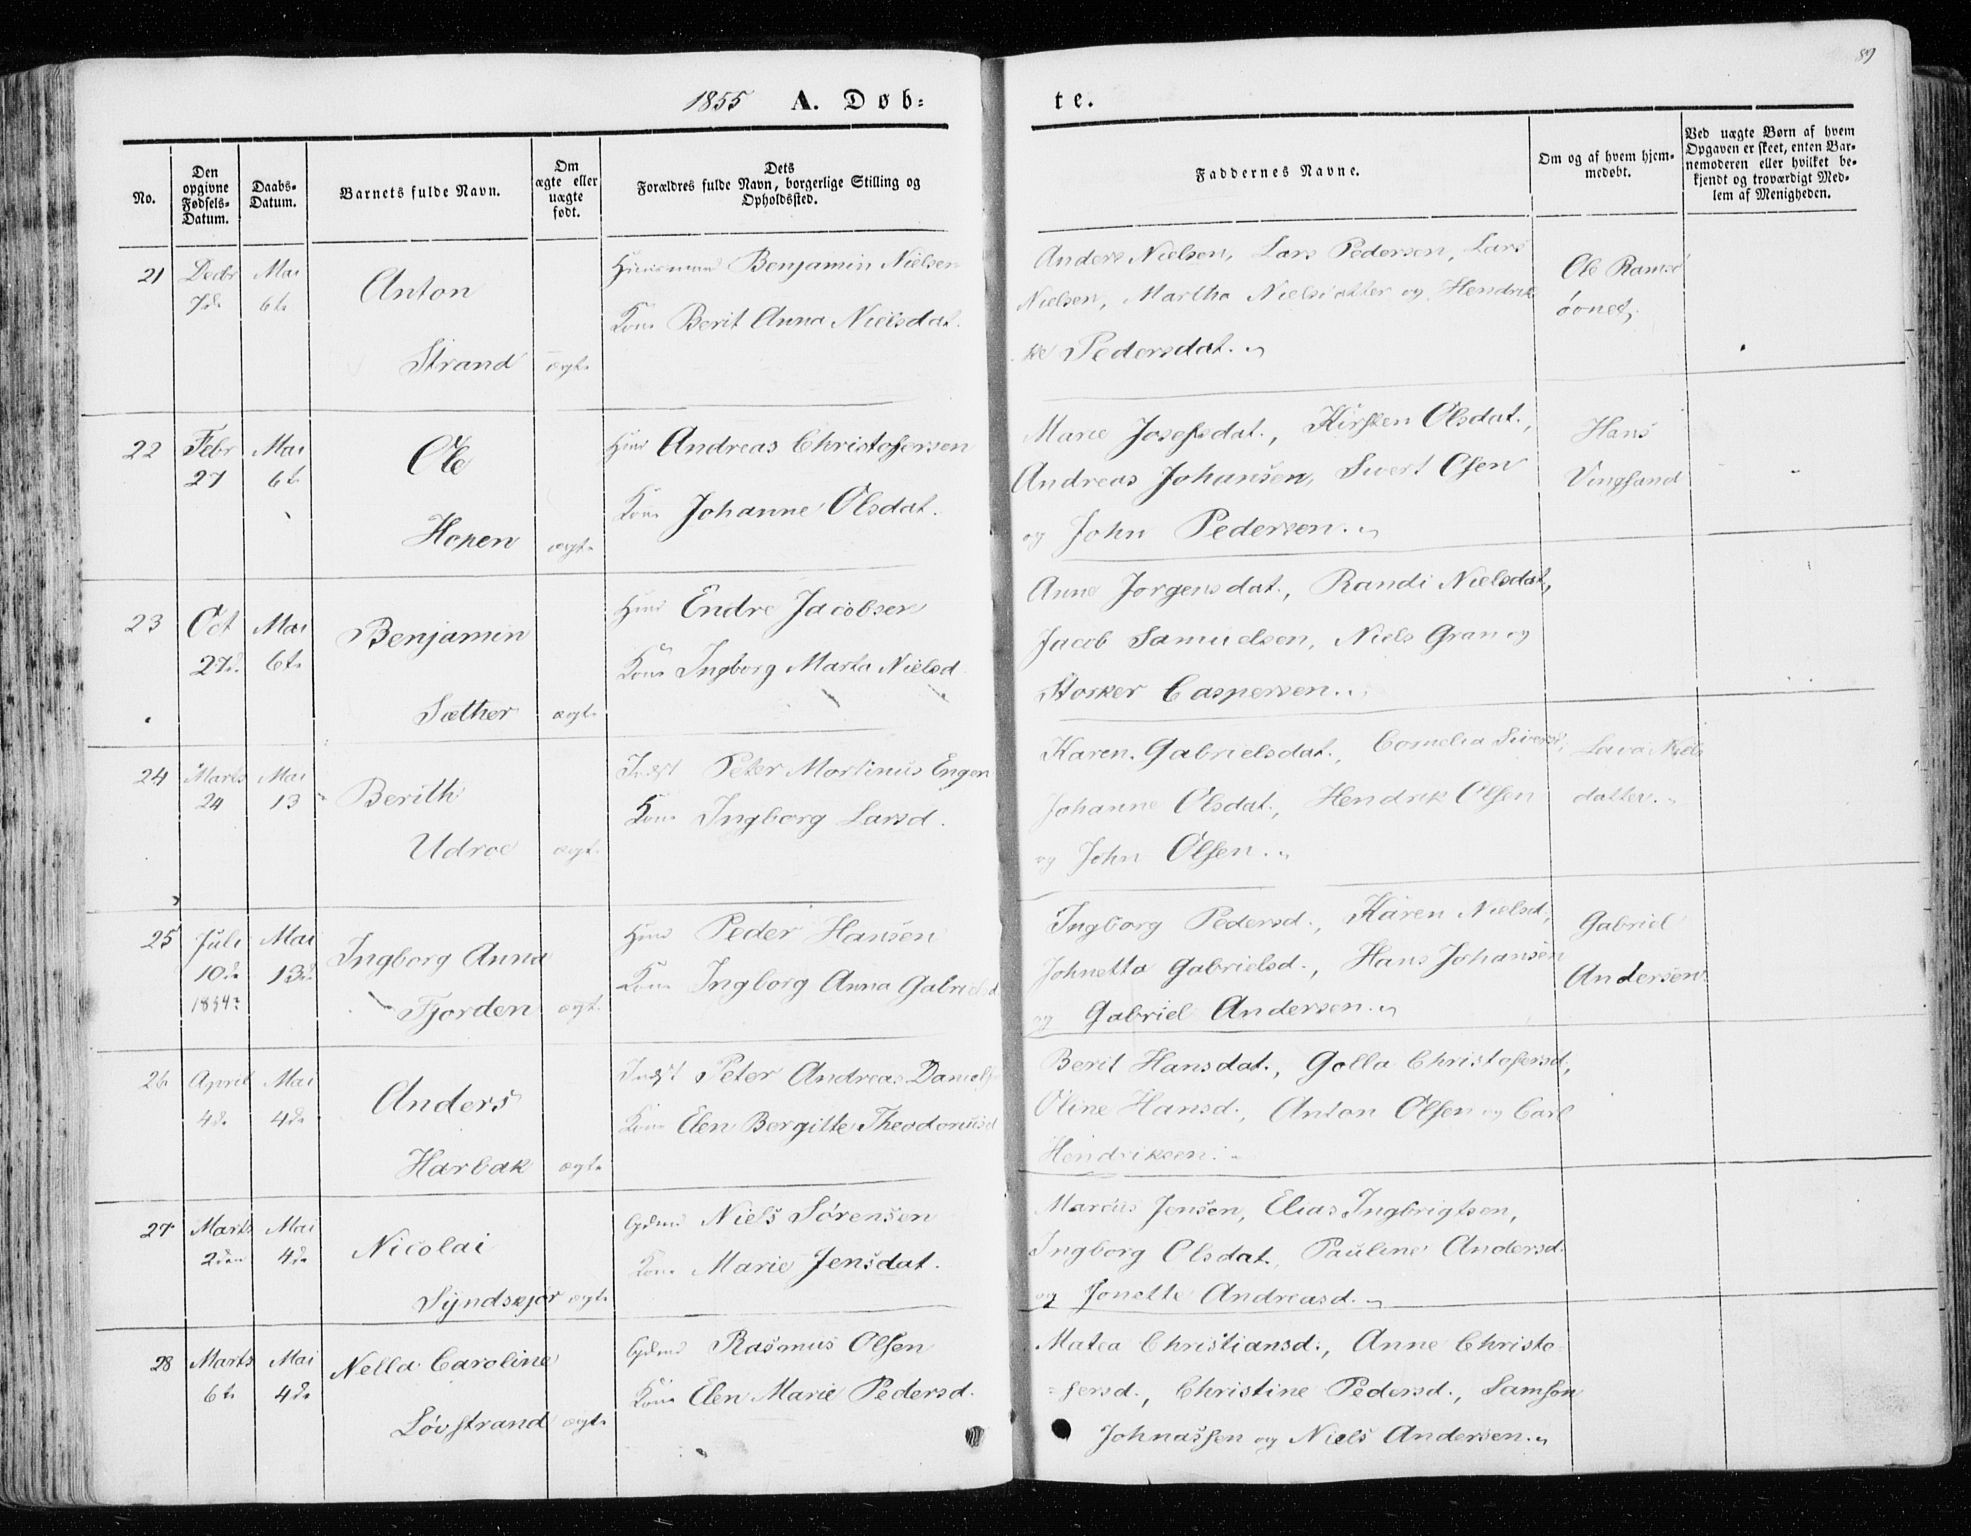 89
1855 A. Døb: te.
No.
Den opgivne Fødsels-Datum.
Daabs-Datum.
Barnets fulde Navn.
Om ægte eller uægte født.
Dets Forældres fulde Navn, borgerlige Stilling og Opholdssted.
Faddernes Navne.
Om og af hvem hjemmedøbt.
Ved uægte Børn af hvem Opgaven er skeet, enten Barnemoderen eller hvilket bekjendt og troværdigt Medlem af Menigheden.
21 Decbr Mai Anton Benjamin Nielsen Anders Nielsen, Lars Pedersen, Lars Ole Ramsø
7de 6te Kone Berit Anna Nielsdat. Nielsen, Martha Nielsdatter og Hendrik øvnet,
Strand ægte ke Pedersdat.
22 Febr Mai Ole Andreas Christofersen Marie Josefsdat., Kirsten Olsdat., Hans
27 6te Kone Johanne Olsdat. Andreas Johansen, Sivert Olsen Vingsand
Hopen ægte og John Pedersen.
23 Oct Mai Benjamin Endre Jacobsen Anne Jørgensdat., Randi Nielsdat,
27de 6te Kone Ingborg Marta Nielsd Jacob Samuelsen, Niels Gran og
Sæther ægte Storker Caspersen.
24 Marts Mai Berith Indst Peter Martinus Engen Karen Gabrielsdat., Cornelia Siversd,
24 13 Kone Ingborg Larsd. Johanne Olsdat., Hendrik Olsen datter.
Udroe ægte og John Olsen.
25 Juli Mai Ingborg Anna Peder Hansen Ingborg Pedersd., Karen Nielsd, Gabriel
10de 13de Kone Ingborg Anna Gabrielsd Johnetta Gabrielsd., Hans Johansen Andersen
1854 Fjorden ægte og Gabriel Andersen.
26 April Mai Anders Indst Peter Andreas Danielsen Berit Hansdat., Golla Christofersd,
4de 4de Kone Elen Bergitte Theodoriusd Oline Hansd., Anton Olsen og Carl
Harbak ægte Hendriksen.
27 Marts Mai Nicolai Niels Sørensen Marcus Jensen, Elias Ingbrigtsen,
2den 4de Kone Marie Jensdat. Ingborg Olsdat, Pauline Andersd.
Syndskjør ægte og Jonette Andreasd.
28 Marts Mai Nella Caroline Rasmus Olsen Matea Christiansd., Anne Christo-
6te 4de Kone Elen Marie Pedersd. fersd., Christine Pedersd., Samson
Løvstrand ægte Johnassen og Niels Andersen.